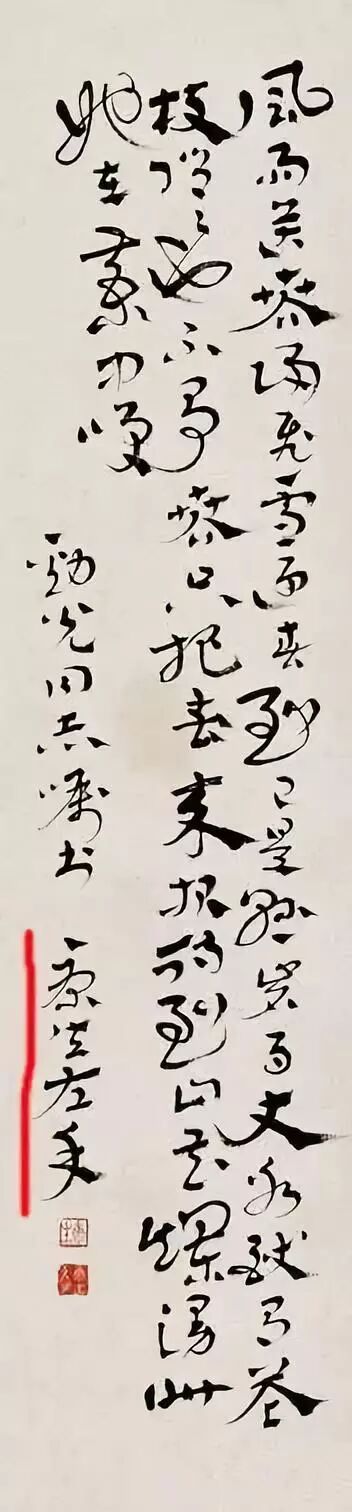 風雨送春歸飛雪迎春到已是懸崖百丈冰猶有花
枝俏々也不爭春只把春來报待到山花爛漫时
她在叢中咲
勁光同志嘱书 康生左手